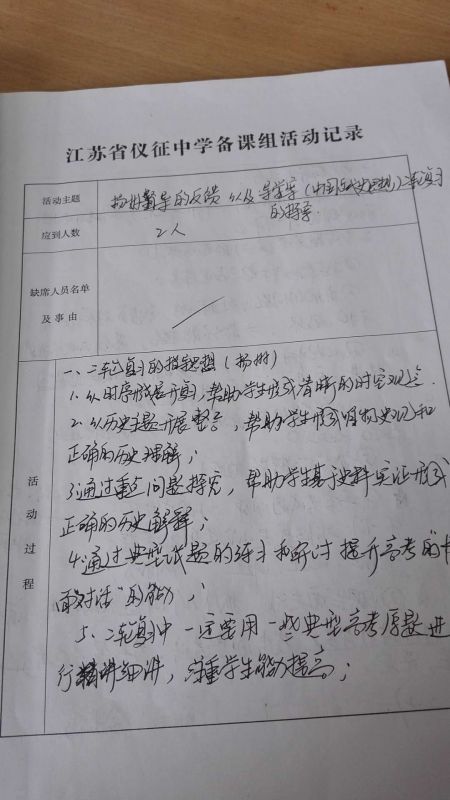 江苏省仪征中学备课组活动记录
活动主题
扬州督导的反馈以及导学案(中国古代史思想)二轮复习
的指导.
应到人数
2人
缺席人员名单
及事由
活动过程
一、二轮复习的指导思想(扬州)
1.以时序形式展开复习,帮助学生形成清晰的时空观念.
2.以历史主题开展整合,帮助学生形成唯物史观和
正确的历史理解;
3.通过重点问题探究,帮助学生基于史料实证形成
正确的历史解释;
4.通过典型试题的练习和研讨提升高考的"卡
面对话"的能力;
5.二轮复习中一定要用一些典型高考原题进
行精讲细讲,注重学生能力提高;